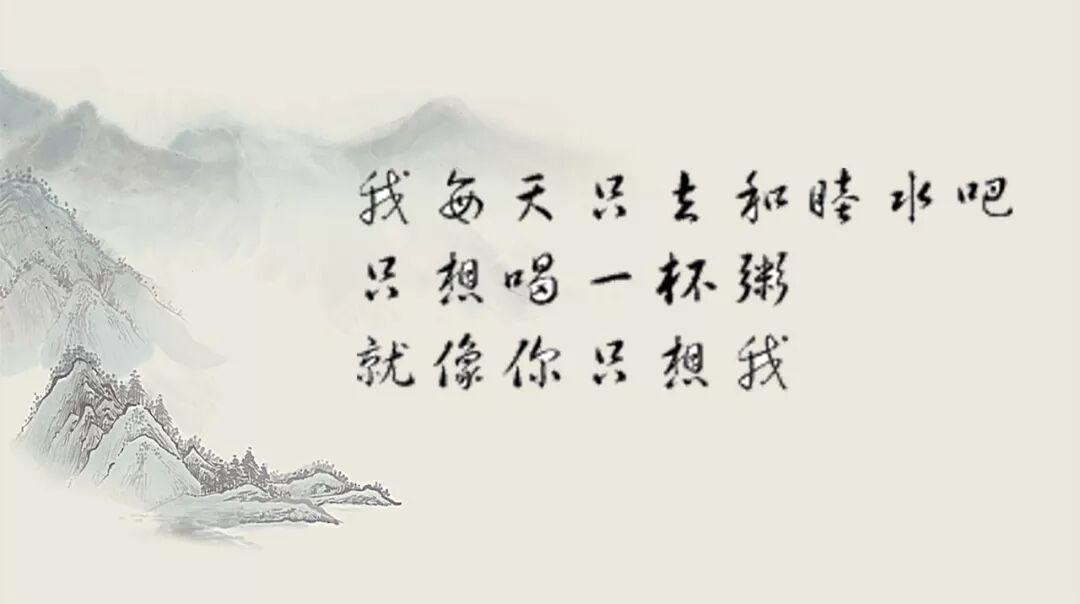 我每天只去和睦水吧
只想喝一杯粥
就像你只想我